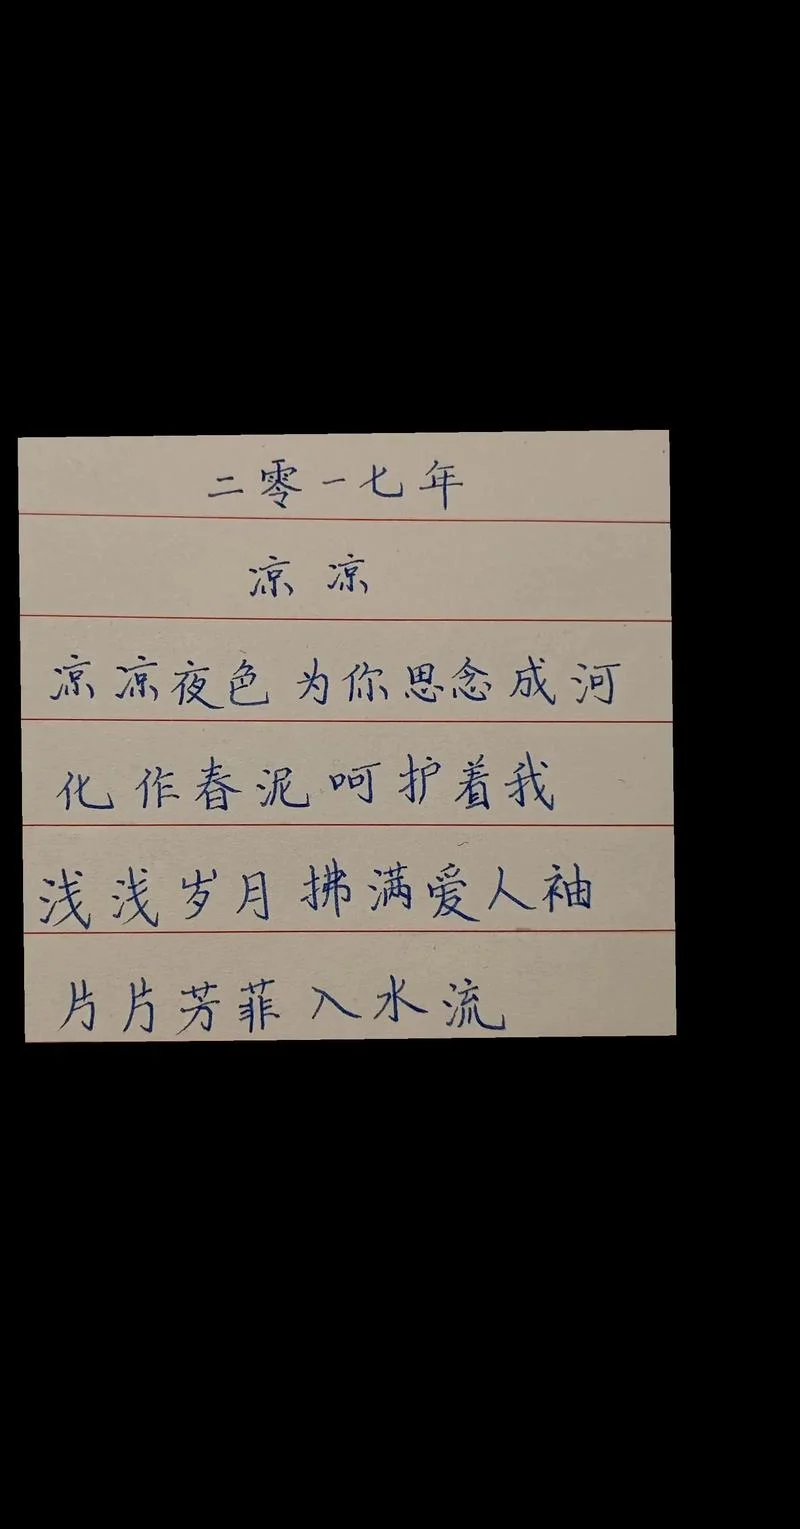 二零一七年
凉凉
凉凉夜色为你思念成河
化作春泥呵护着我
浅浅岁月拂满爱人袖
片片芳菲入水流